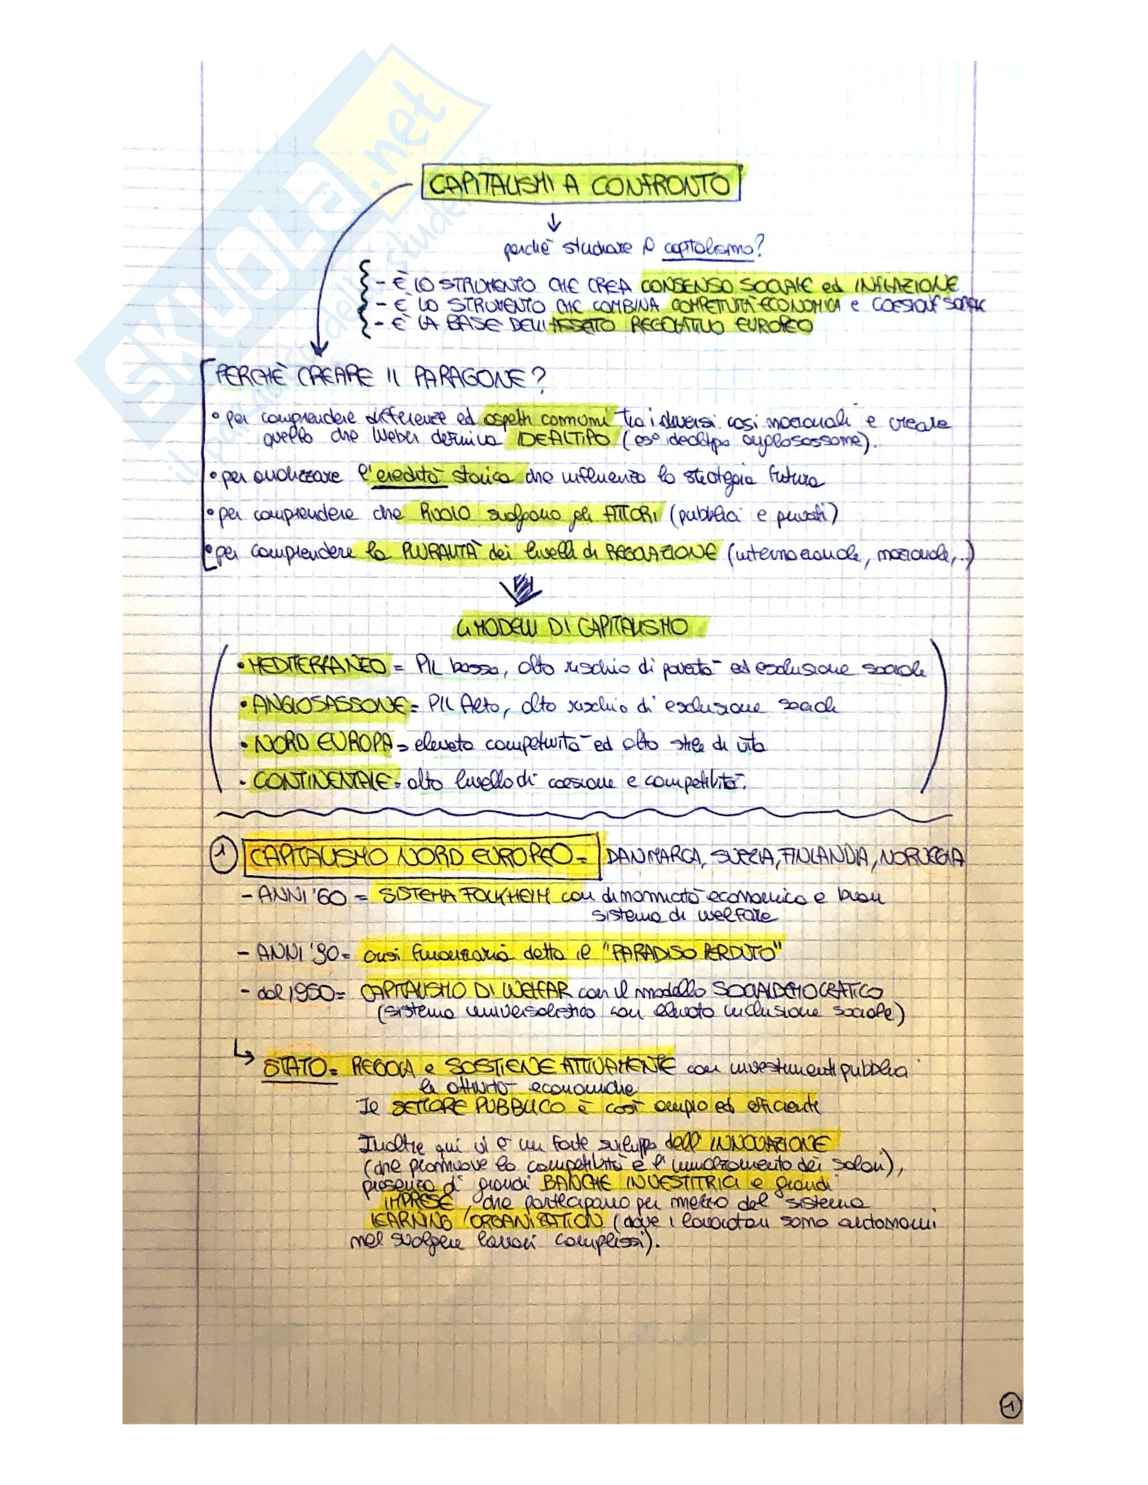 SKUOLA.net
CAPITALISMI A CONFRONTO
perchè studiare il capitalismo?
- È LO STRUMENTO CHE CREA CONSENSO SOCIALE ed INFLAZIONE
- È LO STRUMENTO CHE COMBINA COMPETITIVITÀ ECONOMICA e COESIONE SOCIALE
- È LA BASE DELL'ASSETO REGOLATIVO EUROPEO
PERCHÈ CREARE IL PARAGONE?
• per comprendere differenze ed aspetti comuni tra i diversi casi nazionali e creare
quello che Weber definiva IDEALTIPO (es. idealtipo anglosassone).
• per analizzare l'eredità storica che influenza la strategia futura
• per comprendere che RUOLO svolgono gli ATTORI (pubblici e privati)
• per comprendere la PLURALITÀ dei livelli di REGOLAZIONE (internazionale, nazionale,..)
4 MODELLI DI CAPITALISMO
• MEDITERRANEO = PIL basso, alto rischio di povertà ed esclusione sociale
• ANGLOSASSONE = PIL Alto, alto rischio di esclusione sociale
• NORD EUROPA = elevata competitività ed alto stile di vita
• CONTINENTALE = alto livello di coesione e competitività.
1 CAPITALISMO NORD EUROPEO = DANIMARCA, SVEZIA, FINLANDIA, NORVEGIA
- ANNI '60 = SISTEMA FOLKHEIM con dinamicità economica e buon
sistema di welfare
- ANNI '90 = crisi finanziaria detta il "PARADISO PERDUTO"
- dal 1950 = CAPITALISMO DI WELFAR con il modello SOCIALDEMOCRATICO
(sistema universalistico con elevata inclusione sociale)
STATO = REGOLA e SOSTIENE ATTIVAMENTE con investimenti pubblici
le attività economiche
Il SETTORE PUBBLICO è così ampio ed efficiente
Inoltre qui vi è un forte sviluppo dell'INNOVAZIONE
(che promuove la competitività e l'innalzamento dei salari),
presenza di grandi BANCHE INVESTITRICI e grandi
IMPRESE che partecipano per mezzo del sistema
LEARNING / ORGANIZATION (dove i lavoratori sono autonomi
nel svolgere lavori complessi).
1